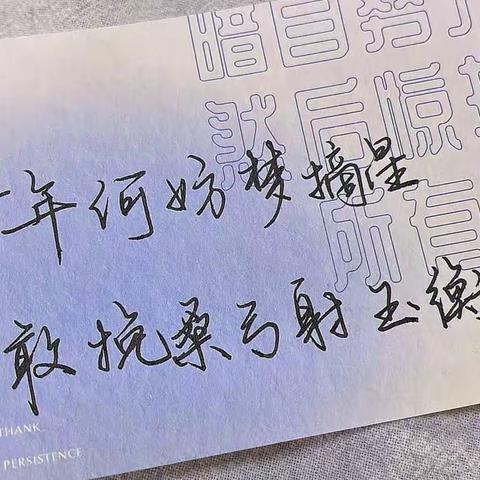 暗自努
然后惊
所有
年何妨梦摘星
敢挽桑弓射玉衡
THANK
PERSISTENCE